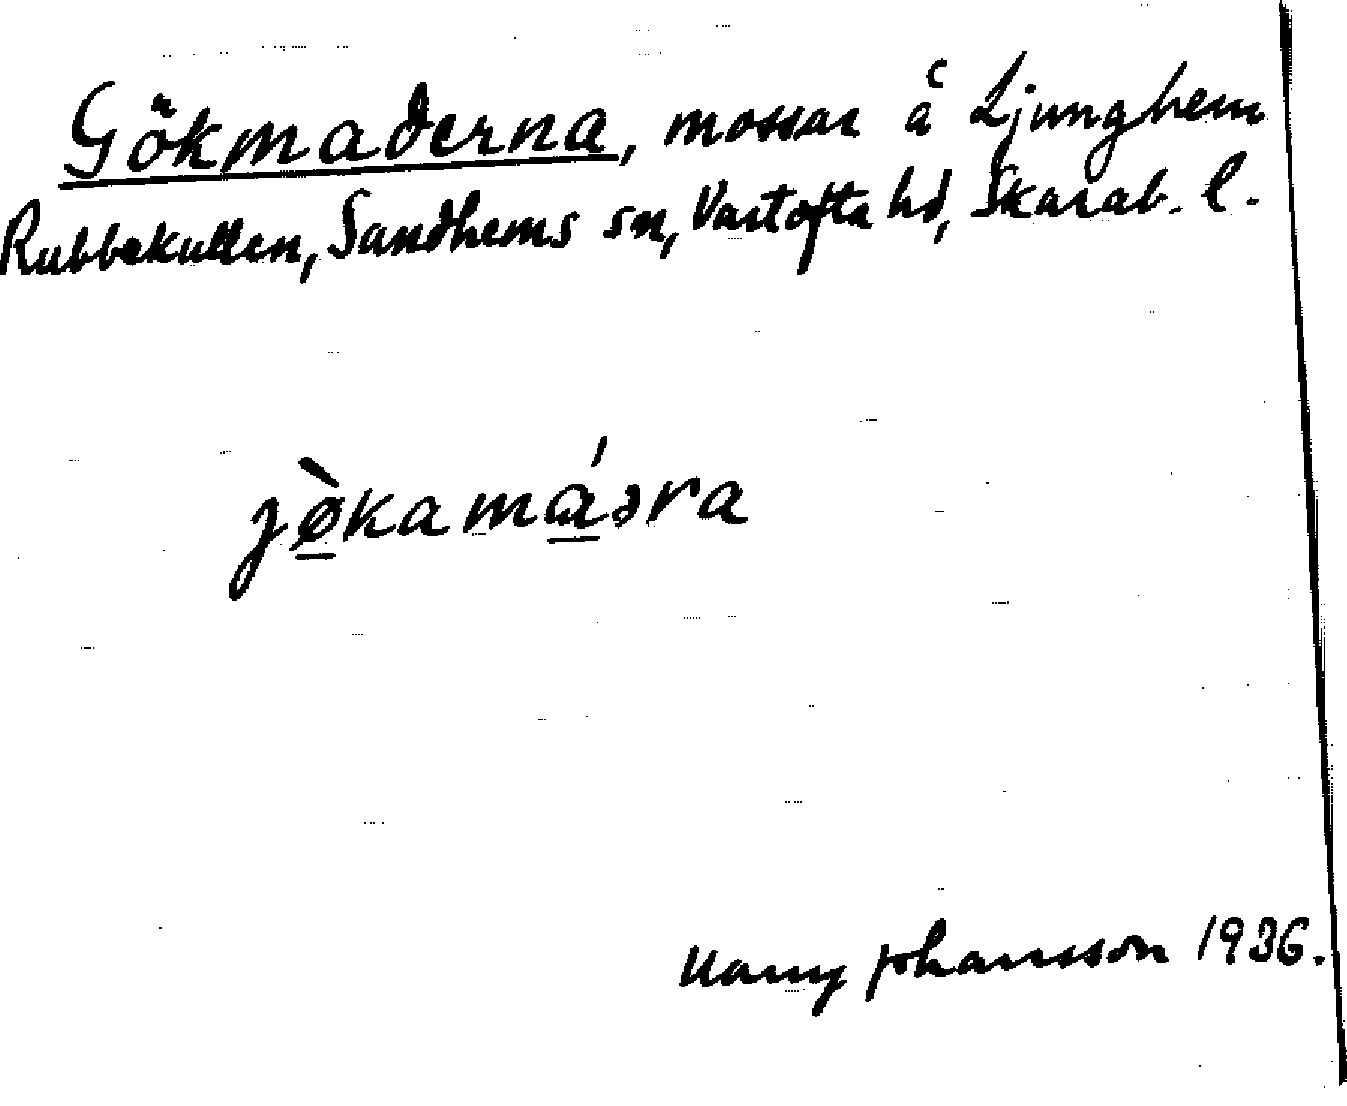 Gökmaderna, mossar å Ljunghem
Rubbekullen, Sandhems sn, Vartofta hd, Skarab. l.
jø̀kamáəra
Harry Johansson 1936.